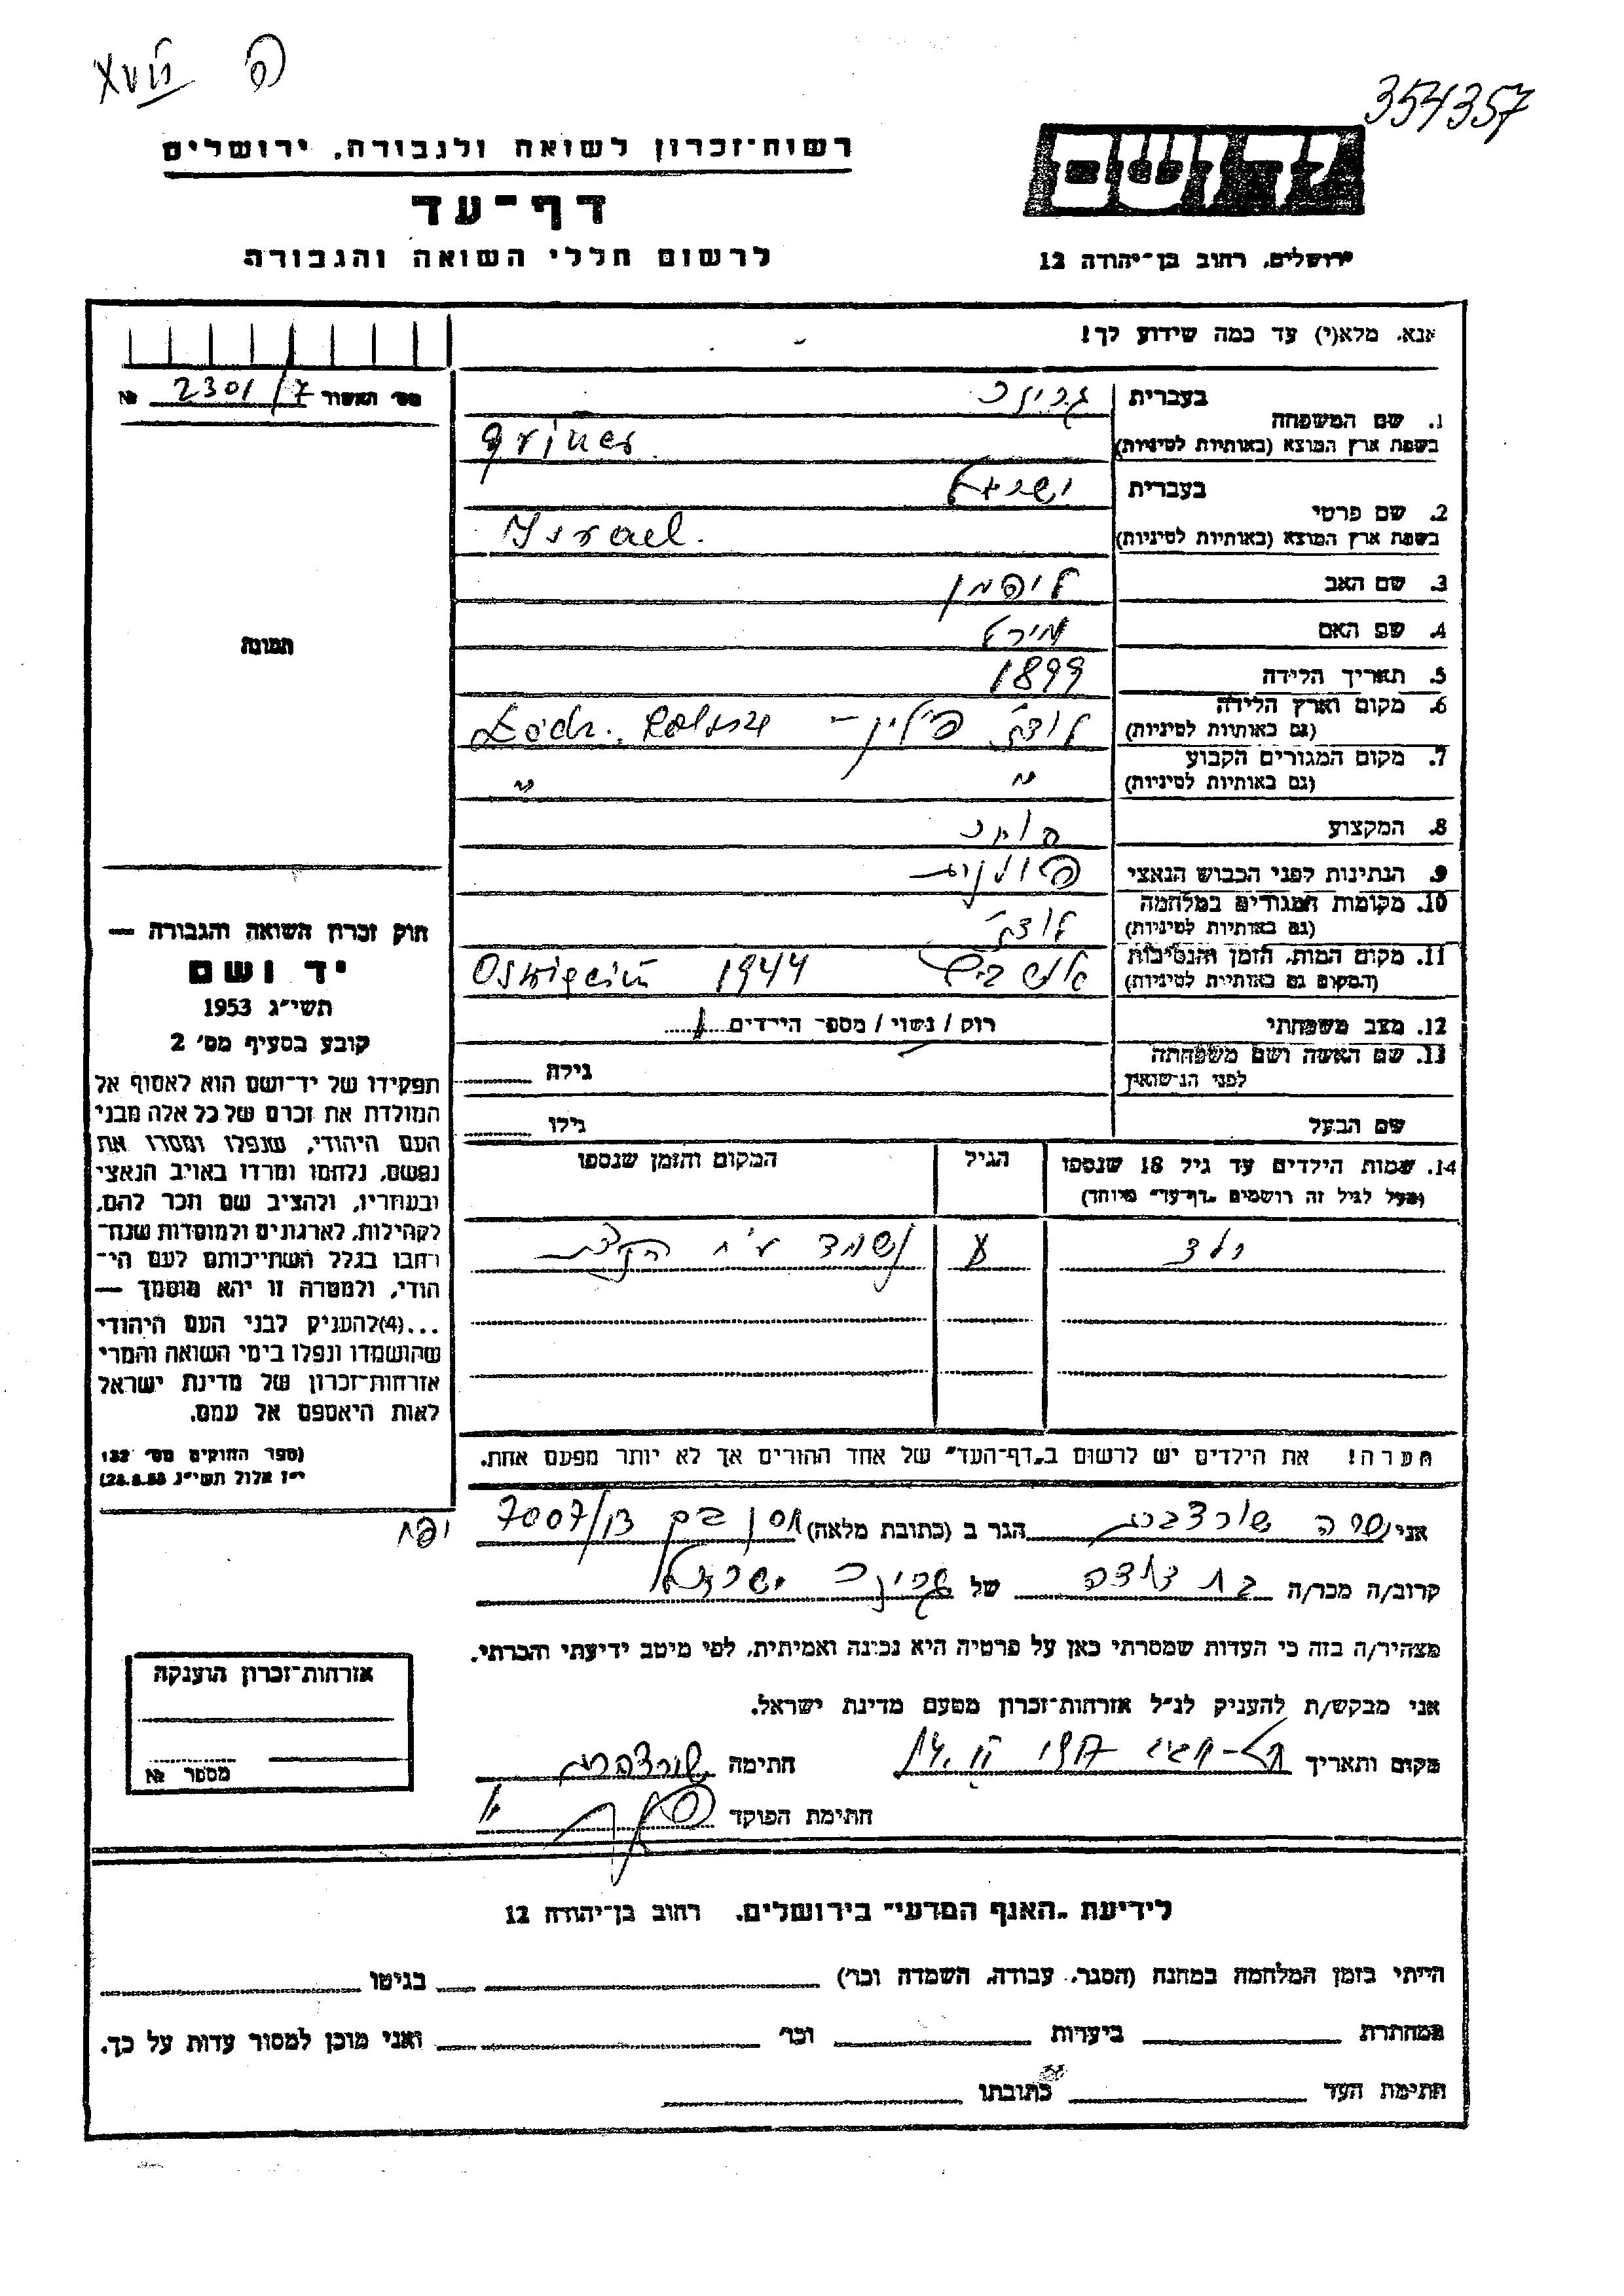 XVII פ
354357
רשות־זכרון לשואה ולגבורה, ירושלים
יד ושם
דף־עד
לרשום חללי השואה והגבורה
ירושלים, רחוב בן־יהודה 12
אנא, מלא(י) עד כמה שידוע לך!
מס׳ האשור 2301/7 №
1. שם המשפחה
בעברית גרינר
בשפת ארץ המוצא (באותיות לטיניות) griner
2. שם פרטי
בעברית ישראל
בשפת ארץ המוצא (באותיות לטיניות) Israel.
3. שם האב ליפמן
4. שם האם מירל
5. תאריך הלידה 1899
6. מקום וארץ הלידה (גם באותיות לטיניות) לודז׳ פולין – Łódź., Polska
7. מקום המגורים הקבוע (גם באותיות לטיניות) " "
8. המקצוע סוחר
9. הנתינות לפני הכבוש הנאצי פולנית
10. מקומות המגורים במלחמה (גם באותיות לטיניות) לודז׳
11. מקום המות, הזמן והנסיבות (המקום גם באותיות לטיניות) 1944 Oświęcim
12. מצב משפחתי רוק / נשוי / מספר הילדים 1
13. שם האשה ושם משפחתה לפני הנישואין גילה
שם הבעל גילו
14. שמות הילדים עד גיל 18 שנספו (מעל לגיל זה רושמים „דף־עד” מיוחד)
הגיל
המקום והזמן שנספו
ילד
הערה! את הילדים יש לרשום ב„דף־העד” של אחד ההורים אך לא יותר מפעם אחת.
תמונה
חוק זכרון השואה והגבורה —
יד ושם
תשי״ג 1953
קובע בסעיף מס׳ 2
תפקידו של יד־ושם הוא לאסוף אל
המולדת את זכרם של כל אלה מבני
העם היהודי, שנפלו ומסרו את
נפשם, נלחמו ומרדו באויב הנאצי
ובעוזריו, ולהציב שם וזכר להם,
לקהילות, לארגונים ולמוסדות שנח־
רבו בגלל השתייכותם לעם הי־
הודי, ולמטרה זו יהא מוסמך —
...(4)להעניק לבני העם היהודי
שהושמדו ונפלו בימי השואה והמרי
אזרחות־זכרון של מדינת ישראל
לאות היאספם אל עמם.
(ספר החוקים מס׳ 132
י״ז אלול תשי״ג 28.8.53)
אני שרה הגר ב (כתובת מלאה) 7007
יפו
קרוב/ה מכר/ה בת דודה של גרינר ישראל
מצהיר/ה בזה כי העדות שמסרתי כאן על פרטיה היא נכונה ואמיתית, לפי מיטב ידיעתי והכרתי.
אני מבקש/ת להעניק לנ״ל אזרחות־זכרון מטעם מדינת ישראל.
מקום ותאריך תל־אביב חתימה
חתימת הפוקד
אזרחות־זכרון הוענקה
מספר №
לידיעת „האגף המדעי” בירושלים, רחוב בן־יהודה 12
הייתי בזמן המלחמה במחנה (הסגר, עבודה, השמדה וכו׳) בגיטו
במחתרת ביערות וכו׳ ואני מוכן למסור עדות על כך.
חתימת העד כתובתו